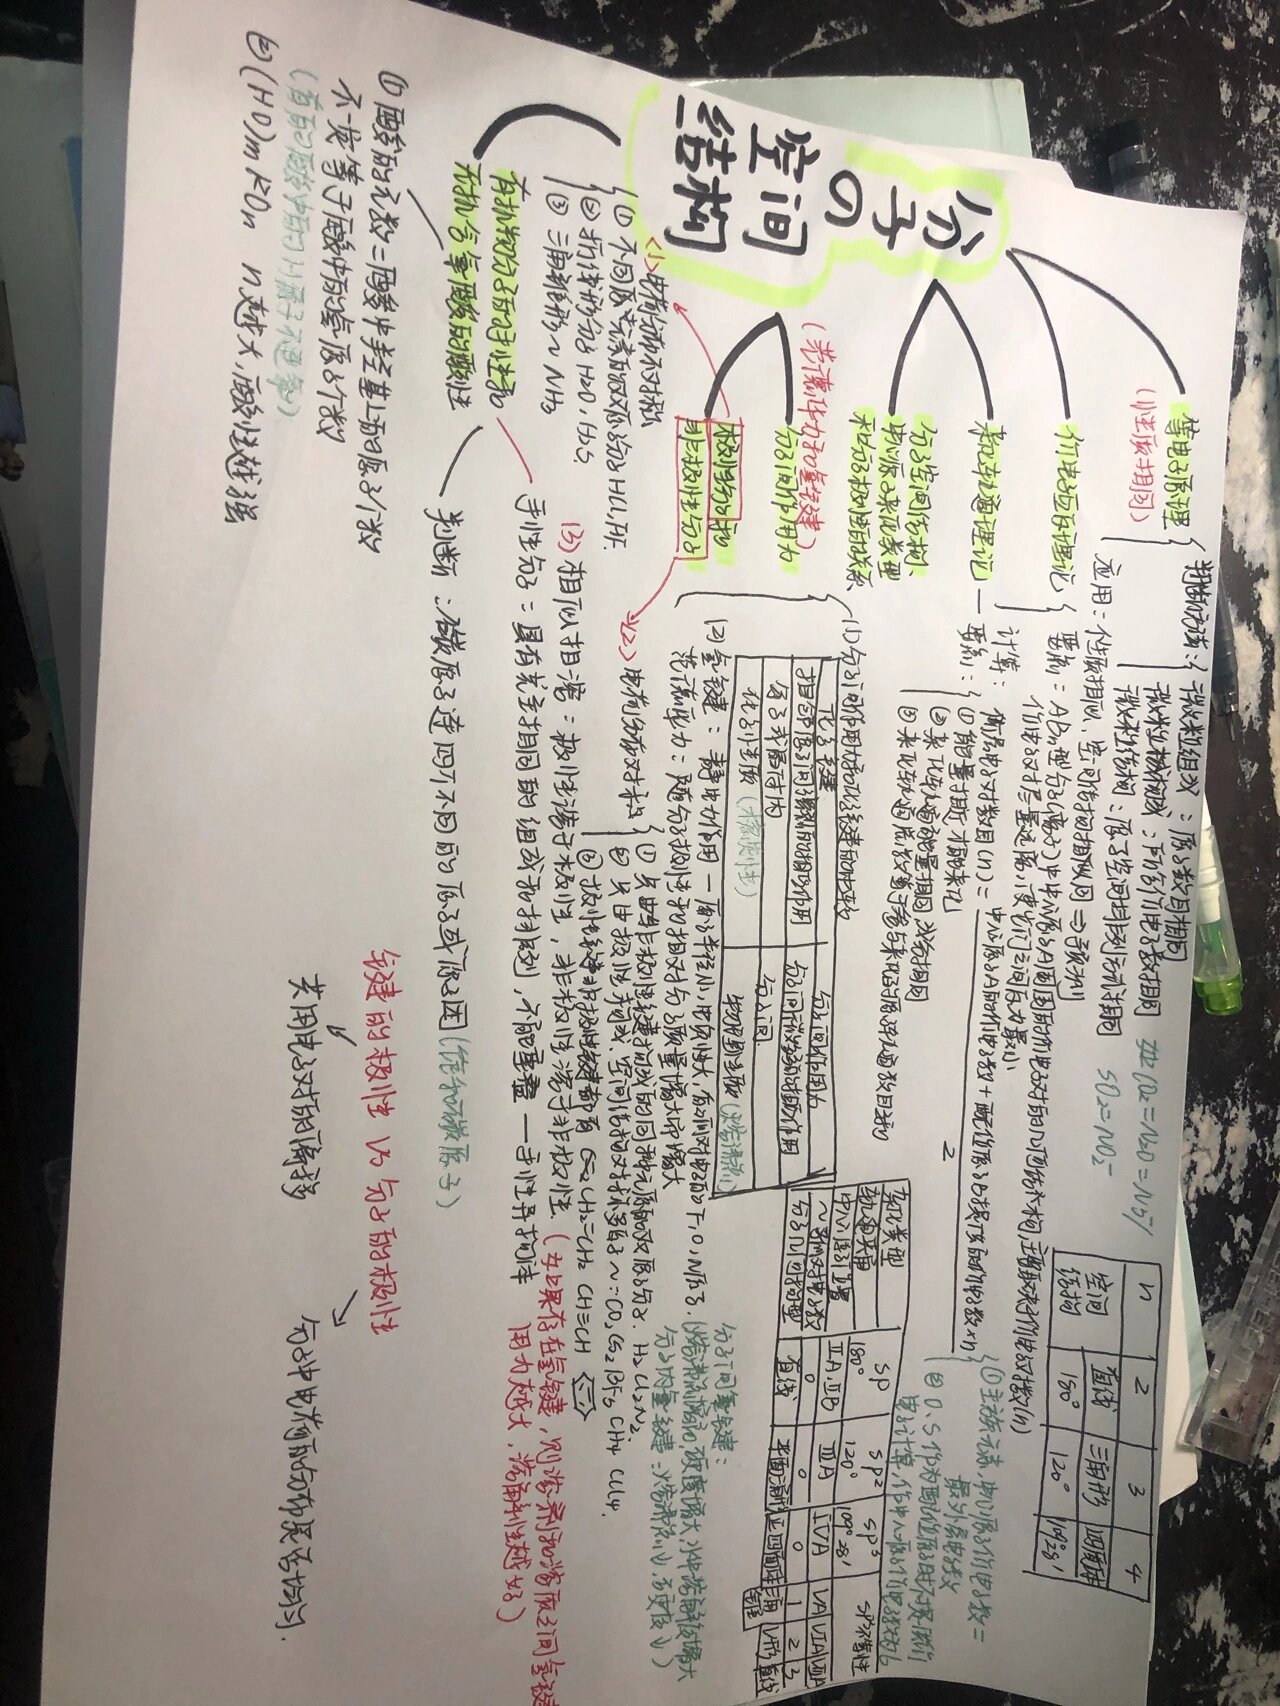 分子の
空间
结构
等电子原理
(性质相同)
判断方法:
微粒组成:原子数目相同
微粒构成:价电子数相同
微粒结构:原子空间排列方式相同
如 CO₂=N₂O=N₃⁻
SO₂=NO₂⁻
应用:性质相似、空间结构相似
价电子互斥理论
要点:ABn型分子(离子)中中心原子A周围的价电子对的几何结构,主要取决于价电子对数(n)
价电子对尽量远离,使它们之间斥力最小
计算:
价层电子对数目(n)=
中心原子A的价电子数+配位原子提供的价电子数×n
2
①主族元素,中心原子价电子数=
最外层电子数
②O、S作为配位原子时不提供
n
2
3
4
空间
结构
直线
三角形
四面体
180°
120°
109°28′
杂化轨道理论
要点:
①能量相近才能杂化
②杂化轨道能量相同,成分相同
③杂化轨道总数等于参与杂化的原子轨道数目之和
分子空间结构、
杂化类型
sp
sp²
sp³
sp³不等性
180°
120°
109°28′
ⅡA,ⅡB
ⅢA
ⅣA
ⅤA
ⅥA
ⅦA
0
0
0
1
2
3
直线
正四面体
三角
V形
直线
分子间作用力
(范德华力和氢键)
(1)分子间作用力与化学键的比较
化学键
分子间作用力
相邻原子间强烈的相互作用
分子或原子内
分子间
化学性质(稳定性)
物理性质(熔沸点)
范德华力:随分子极性和相对分子质量增大而增大
(2)氢键:静电作用—原子半径小,电负性大,有孤对电子的F、O、N原子
分子间氢键:
(熔沸点高,硬度增大,水中溶解度增大)
分子内氢键:(熔沸点↓,硬度↓)
极性分子和
非极性分子
(1)电荷分布不对称
①不同原子元素的双原子分子 HCl,HF.
②折线形分子 H₂O,H₂S
③三角锥形~NH₃
(2)电荷分布对称
①只由非极性键构成的同种元素的双原子分子. H₂ Cl₂ N₂.
②只由极性键构成、空间结构对称的多原子~:CO₂ CS₂ BF₃ CH₄ CCl₄.
③极性键非极性键都有 CH₂=CH₂ CH≡CH
(3)相似相溶:极性溶于极性,非极性溶于非极性.
(如果存在氢键,则溶剂和溶质之间氢键
作用力越大,溶解性越好)
有机物分子的手性和
无机含氧酸的酸性
手性分子:具有完全相同的组成和排列,不能重叠—手性异构体
判断:碳原子连四个不同的原子或原子团(饱和碳原子)
①酸的元数=酸中羟基上的氢原子个数
不一定等于酸中的氢原子个数
(有的酸中的H原子不电离)
②(HO)mROn n越大,酸性越强
键的极性与分子的极性
共用电子对的偏移
分子中电荷的分布是否均匀.